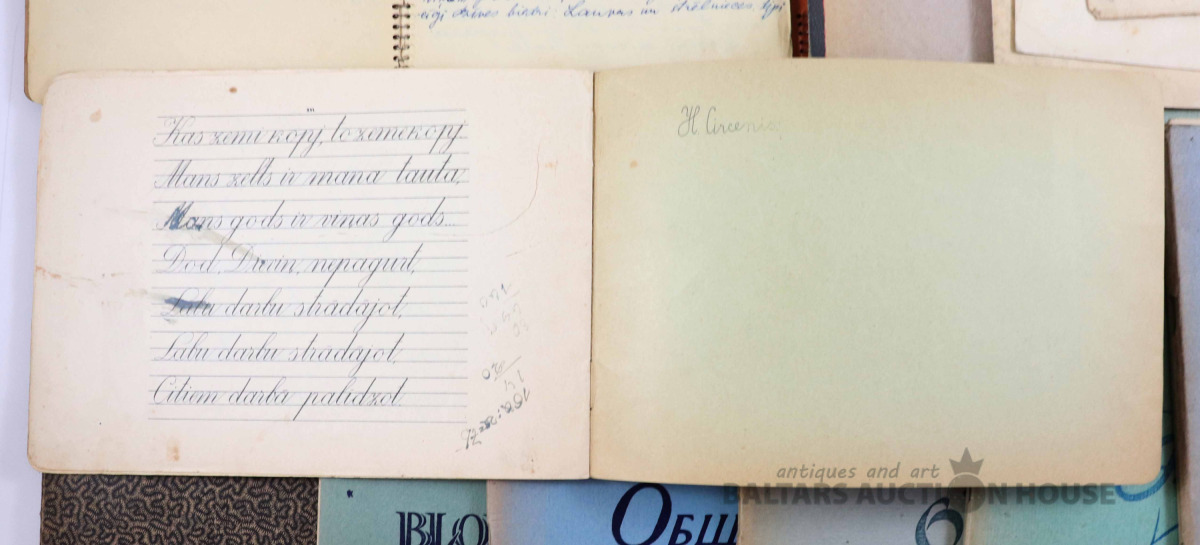 bistri: Laurus un
Kas zemi kopj, to zeme kopj
Mans zelts ir mana tauta,
Mans gods ir viņas gods...
Dod, Dieviņ, nepagurt,
Labu darbu strādājot,
Labu darbu strādājot,
Citiem darbā palīdzot.
H.
antiques and art
BALTARS AUCTION HOUSE
BLO
ОБЩ
6